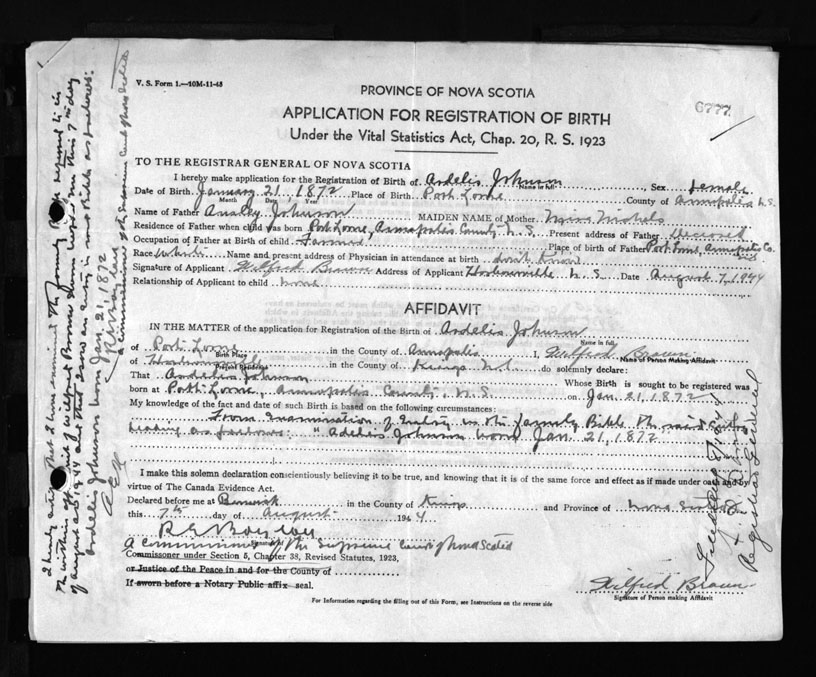 V. S. Form 1.—10M-11-43
PROVINCE OF NOVA SCOTIA
6777
APPLICATION FOR REGISTRATION OF BIRTH
Under the Vital Statistics Act, Chap. 20, R. S. 1923
TO THE REGISTRAR GENERAL OF NOVA SCOTIA
I hereby make application for the Registration of Birth of Ardelis Johnson, Sex Female
Name in full
Date of Birth January 21, 1872 Place of Birth Port Lorne County of Annapolis N.S.
Month Date Year
Name of Father Ansley Johnson MAIDEN NAME of Mother Miss
Residence of Father when child was born Port Lorne, Annapolis County N.S. Present address of Father Deceased
Occupation of Father at Birth of child Farmer Place of birth of Father Port Lorne, Annapolis Co.
Race White Name and present address of Physician in attendance at birth don't know
Signature of Applicant Wilfred Brown Address of Applicant Harbourville N.S. Date August 7, 1944
Relationship of Applicant to child none
AFFIDAVIT
IN THE MATTER of the application for Registration of the Birth of Ardelis Johnson
Name in full
of Port Lorne in the County of Annapolis I, Wilfred Brown
Birth Place Name of Person making Affidavit
of Harbourville in the County of Kings N.S. do solemnly declare:
Present Residence
That Ardelis Johnson Whose Birth is sought to be registered was
born at Port Lorne, Annapolis County, N.S. on Jan. 21, 1872
My knowledge of the fact and date of such Birth is based on the following circumstances:
From examination of Entry in the family Bible the said entry
reading as follows: "Adelis Johnson born Jan. 21, 1872
I make this solemn declaration conscientiously believing it to be true, and knowing that it is of the same force and effect as if made under oath and by
virtue of The Canada Evidence Act.
Declared before me at Berwick in the County of Kings and Province of Nova Scotia
this 7th day of August 1944
A commissioner of the supreme court of Nova Scotia
Commissioner under Section 5, Chapter 38, Revised Statutes, 1923,
or Justice of the Peace in and for the County of
If sworn before a Notary Public affix seal.
Wilfred Brown
Signature of Person making Affidavit
For Information regarding the filling out of this Form, see Instructions on the reverse side
I hereby certify that I have examined the family Bible referred to in
the within affidavit of Wilfred Brown sworn before me this 7th day
of August AD 1944 and that there is an entry in said Bible as follows:
Ardelis Johnson born Jan. 21, 1872
A commissioner of the Supreme Court of Nova Scotia
Registrar General